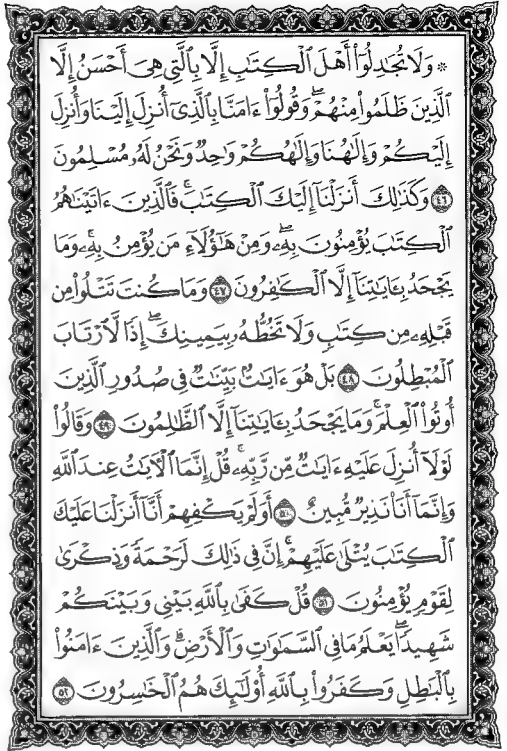 * وَلَا تُجَادِلُوٓا۟ أَهْلَ ٱلْكِتَٰبِ إِلَّا بِٱلَّتِى هِىَ أَحْسَنُ إِلَّا
ٱلَّذِينَ ظَلَمُوا۟ مِنْهُمْ ۖ وَقُولُوٓا۟ ءَامَنَّا بِٱلَّذِىٓ أُنزِلَ إِلَيْنَا وَأُنزِلَ
إِلَيْكُمْ وَإِلَٰهُنَا وَإِلَٰهُكُمْ وَٰحِدٌ وَنَحْنُ لَهُۥ مُسْلِمُونَ
٤٦ وَكَذَٰلِكَ أَنزَلْنَآ إِلَيْكَ ٱلْكِتَٰبَ ۚ فَٱلَّذِينَ ءَاتَيْنَٰهُمُ
ٱلْكِتَٰبَ يُؤْمِنُونَ بِهِۦ ۖ وَمِنْ هَٰٓؤُلَآءِ مَن يُؤْمِنُ بِهِۦ ۚ وَمَا
يَجْحَدُ بِـَٔايَٰتِنَآ إِلَّا ٱلْكَٰفِرُونَ ٤٧ وَمَا كُنتَ تَتْلُوا۟ مِن
قَبْلِهِۦ مِن كِتَٰبٍ وَلَا تَخُطُّهُۥ بِيَمِينِكَ ۖ إِذًا لَّٱرْتَابَ
ٱلْمُبْطِلُونَ ٤٨ بَلْ هُوَ ءَايَٰتٌۢ بَيِّنَٰتٌ فِى صُدُورِ ٱلَّذِينَ
أُوتُوا۟ ٱلْعِلْمَ ۚ وَمَا يَجْحَدُ بِـَٔايَٰتِنَآ إِلَّا ٱلظَّٰلِمُونَ ٤٩ وَقَالُوا۟
لَوْلَآ أُنزِلَ عَلَيْهِ ءَايَٰتٌ مِّن رَّبِّهِۦ ۖ قُلْ إِنَّمَا ٱلْـَٔايَٰتُ عِندَ ٱللَّهِ
وَإِنَّمَآ أَنَا۠ نَذِيرٌ مُّبِينٌ ٥٠ أَوَلَمْ يَكْفِهِمْ أَنَّآ أَنزَلْنَا عَلَيْكَ
ٱلْكِتَٰبَ يُتْلَىٰ عَلَيْهِمْ ۚ إِنَّ فِى ذَٰلِكَ لَرَحْمَةً وَذِكْرَىٰ
لِقَوْمٍ يُؤْمِنُونَ ٥١ قُلْ كَفَىٰ بِٱللَّهِ بَيْنِى وَبَيْنَكُمْ
شَهِيدًا ۖ يَعْلَمُ مَا فِى ٱلسَّمَٰوَٰتِ وَٱلْأَرْضِ ۗ وَٱلَّذِينَ ءَامَنُوا۟
بِٱلْبَٰطِلِ وَكَفَرُوا۟ بِٱللَّهِ أُو۟لَٰٓئِكَ هُمُ ٱلْخَٰسِرُونَ ٥٢